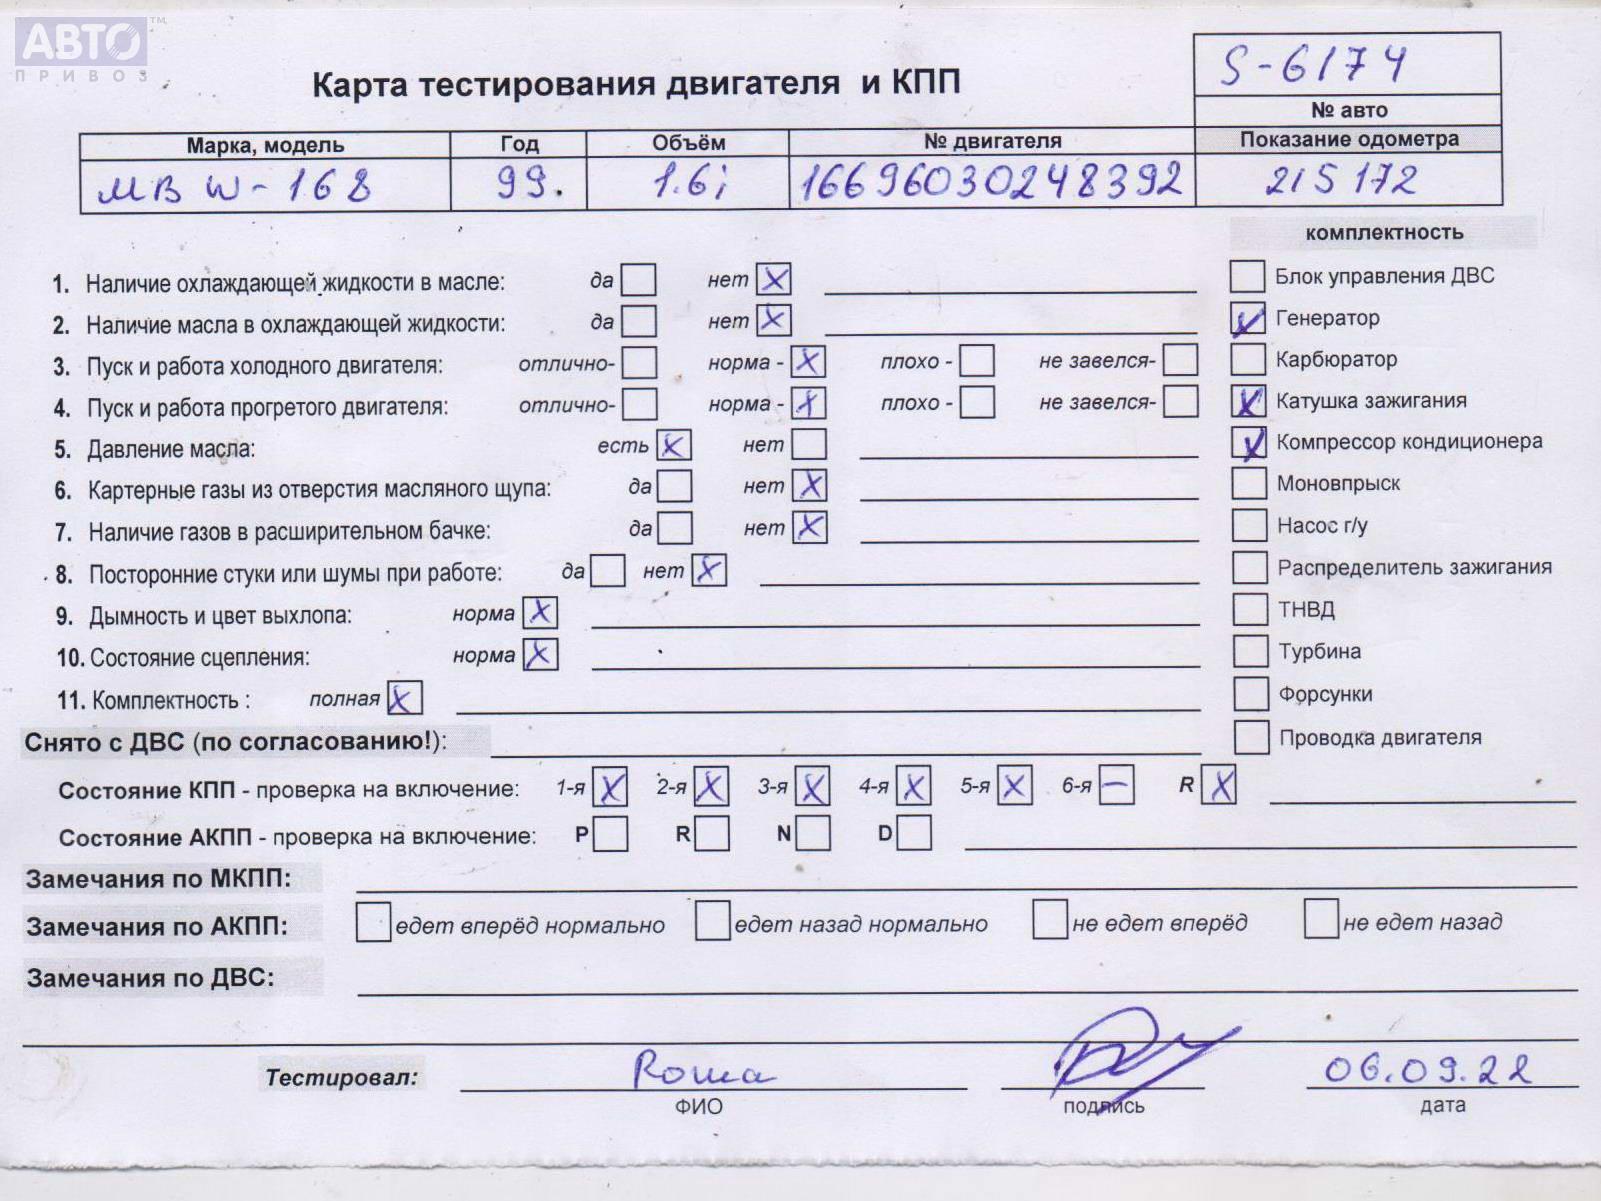 АВТО ™
ПРИВОЗ
S-6174
Карта тестирования двигателя и КПП
№ авто
Марка, модель Год Объём № двигателя Показание одометра
МВ W-168 99. 1.6i 16696030248392 215172
комплектность
1. Наличие охлаждающей жидкости в масле: да нет X Блок управления ДВС
2. Наличие масла в охлаждающей жидкости: да нет X Генератор
3. Пуск и работа холодного двигателя: отлично- норма - X плохо - не завелся- Карбюратор
4. Пуск и работа прогретого двигателя: отлично- норма - X плохо - не завелся- Катушка зажигания
5. Давление масла: есть X нет Компрессор кондиционера
6. Картерные газы из отверстия масляного щупа: да нет X Моновпрыск
7. Наличие газов в расширительном бачке: да нет X Насос г/у
8. Посторонние стуки или шумы при работе: да нет X Распределитель зажигания
9. Дымность и цвет выхлопа: норма X ТНВД
10. Состояние сцепления: норма X Турбина
11. Комплектность : полная X Форсунки
Снято с ДВС (по согласованию!): Проводка двигателя
Состояние КПП - проверка на включение: 1-я X 2-я X 3-я X 4-я X 5-я X 6-я – R X
Состояние АКПП - проверка на включение: P R N D
Замечания по МКПП:
Замечания по АКПП: едет вперёд нормально едет назад нормально не едет вперёд не едет назад
Замечания по ДВС:
Тестировал: Рома 06.09.22
ФИО подпись дата